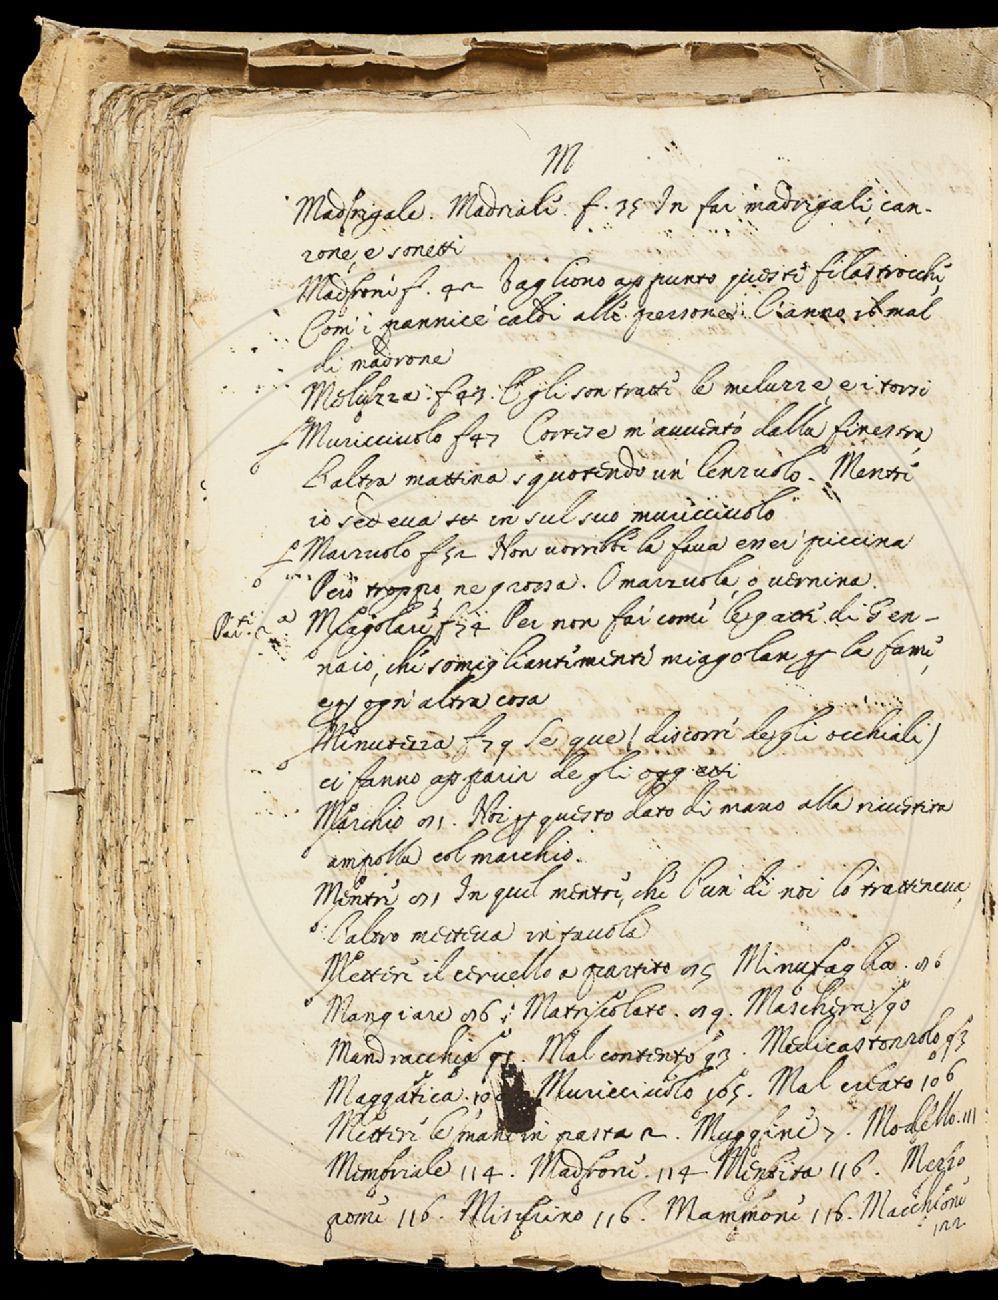 M
Madrigale. Madriali. f. 35 In far madrigali, can-
zone, e sonetti
Madroni f. 42 Vagliono appunto questi filastrocchi
Com' i pannicei caldi alle persone. C'anno il mal
di madrone
Meluzza. f 43. E gli son tratti le meluzze, e i torsi
Muricciuolo f 47 Cortise m'auuentò dalla finestra
L'altra mattina squotendo un' lenzuolo. Mentre
io sedeua in sul suo muricciuolo
Marzuolo f 52 Non uorrebbe la faua esser piccina
Però troppo, ne grossa. O marzuola, o uernina.
Miagolare f 74 Per non far come le gatte di Gen-
naio, che somigliantemente miagolan p la fame,
e p ogni altra cosa
Minutezza f 79 Se que (discorre degli occhiali)
ci fanno apparir degli oggetti
Marchio 81. Noi p questo dato di mano alla riuestita
ampolla col marchio.
Mentre 81 In quel mentre, che l'un di noi lo tratteneua,
L'altro metteua in tauola
Mettere il ceruello a partito 85 Minutaglia. 86
Mangiare 86. Matricolato. 89. Maschera 90
Mandracchia 91. Mal contento 93. Medicastonzolo 93
Muricciuolo 105. Mal creato 106
Mettere le mani in pasta 2. Muggini 7. Modello. 111
Memoriale 114. Madroni. 114 Mentita 116. Mezzo
pomi 116. Mischino 116. Mammone 116. Macchione
122
Par.te 2.a